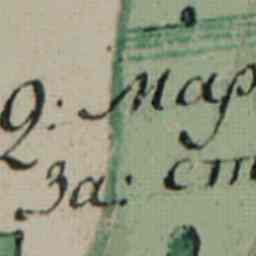 9: Мар
За: ст